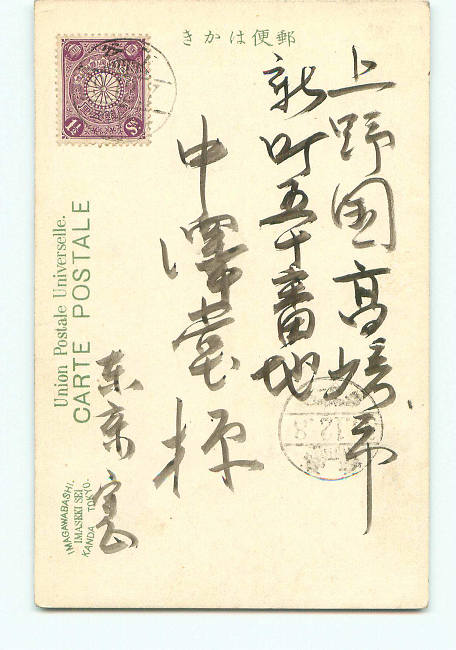 郵便はかき
上野国高崎市
新町五十番地
中澤堂様
東京
1½ Sn.
Union Postale Universelle.
CARTE POSTALE
IMAGAWABASHI.
IMASEKI SEI
KANDA TOKYO.